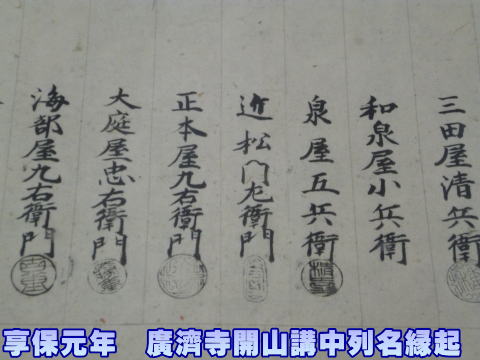 三田屋清兵衛
和泉屋小兵衛
泉屋五兵衛
近松門左衛門
正本屋九右衛門
大庭屋忠右衛門
海部屋九右衛門
享保元年 廣濟寺開山講中列名縁起